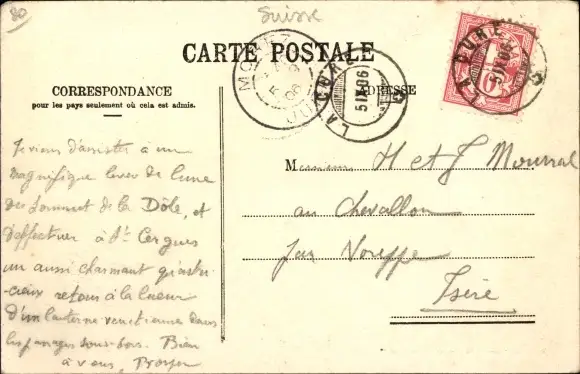 80
Suisse
CARTE POSTALE
CORRESPONDANCE
pour les pays seulement où cela est admis.
ADRESSE
LA CURE
5 IX 06
LA CURE
5 IX 06
MOREZ
Je viens d'assister à un
magnifique lever de lune
du sommet de la Dôle, et
d'effectuer à St. Cergues
un aussi charmant qu'astu-
cieux retour à la lueur
d'une lanterne vénitienne dans
les passages sous-bois. Bien
à vous,
Messieurs H et J Mourral
au Chevallon
par Voreppe
Isère